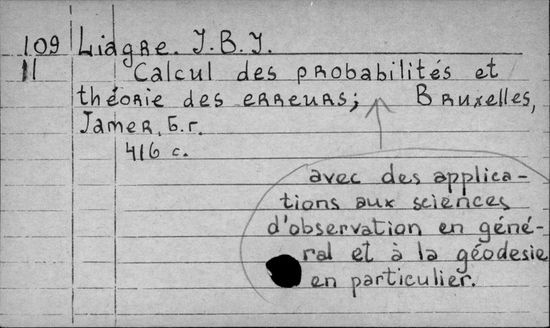 109 Liagre. J.B.J.
11 Calcul des probabilités et
théorie des erreurs; Bruxelles,
Jamer, б.г.
416 с.
avec des applica-
tions aux sciences
d'observation en géné-
ral et à la géodesie
en particulier.